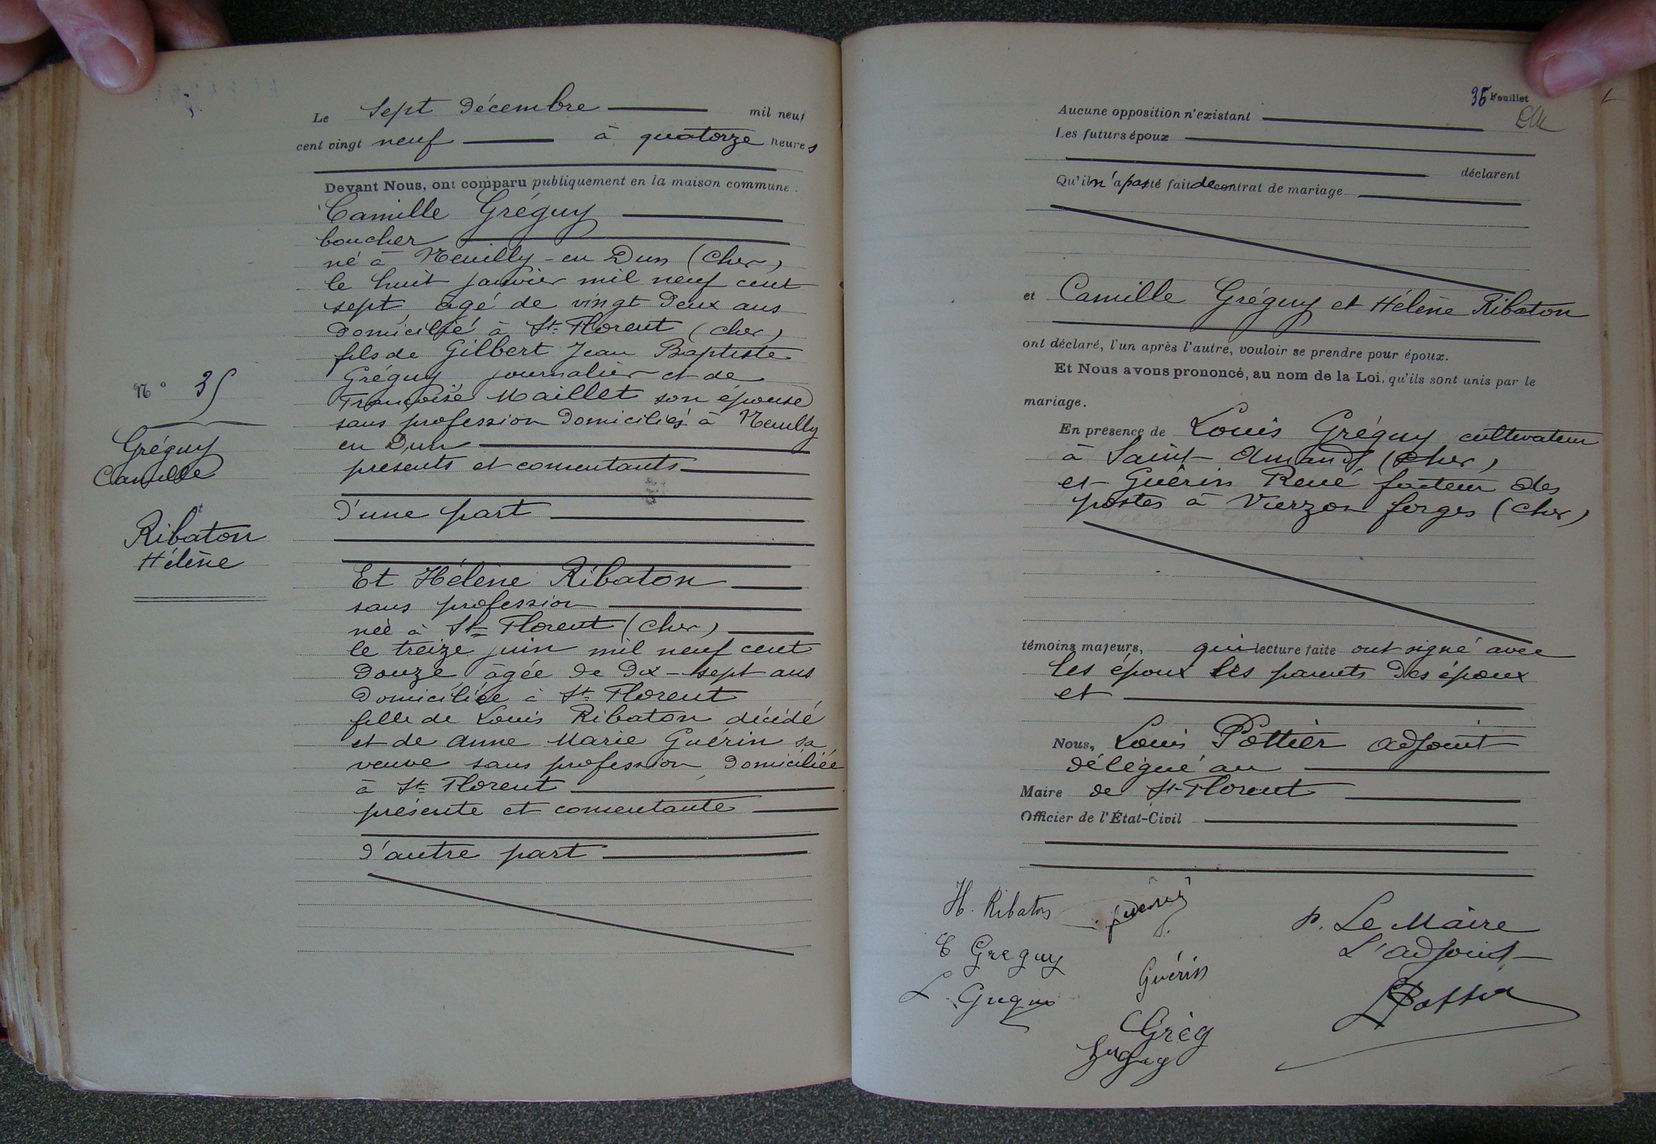 Le sept décembre mil neuf
cent vingt neuf à quatorze heures
Devant Nous, ont comparu publiquement en la maison commune :
Camille Gréguy
boucher
né à Neuilly-en Dun (Cher)
le huit janvier mil neuf cent
sept âgé de vingt deux ans
domicilié à St Florent (Cher)
fils de Gilbert Jean Baptiste
Gréguy journalier et de
Françoise Maillet son épouse
sans profession domiciliés à Neuilly
en Dun
présents et consentants
d'une part
N° 35
Gréguy
Camille
Ribaton
Hélène
Et Hélène Ribaton
sans profession
née à St Florent (Cher)
le treize juin mil neuf cent
douze âgée de dix-sept ans
domiciliée à St Florent
fille de Louis Ribaton décédé
et de Anne Marie Guérin sa
veuve sans profession domiciliée
à St Florent
présente et consentante
d'autre part
35 Feuillet
Aucune opposition n'existant
Les futurs époux
déclarent
Qu'il n'a pas été fait de contrat de mariage
et Camille Gréguy et Hélène Ribaton
ont déclaré, l'un après l'autre, vouloir se prendre pour époux.
Et Nous avons prononcé, au nom de la Loi, qu'ils sont unis par le
mariage.
En présence de Louis Gréguy cultivateur
à Saint-Amand (Cher)
et Guérin René facteur des
postes à Vierzon forges (Cher)
témoins majeurs, qui lecture faite ont signé avec
les époux les parents des époux
et
Nous, Louis Pottier adjoint
délégué au
Maire de St Florent
Officier de l'État-Civil
H. Ribaton
C Greguy
Guérin
Grég
p. Le Maire
L'adjoint
LPottier